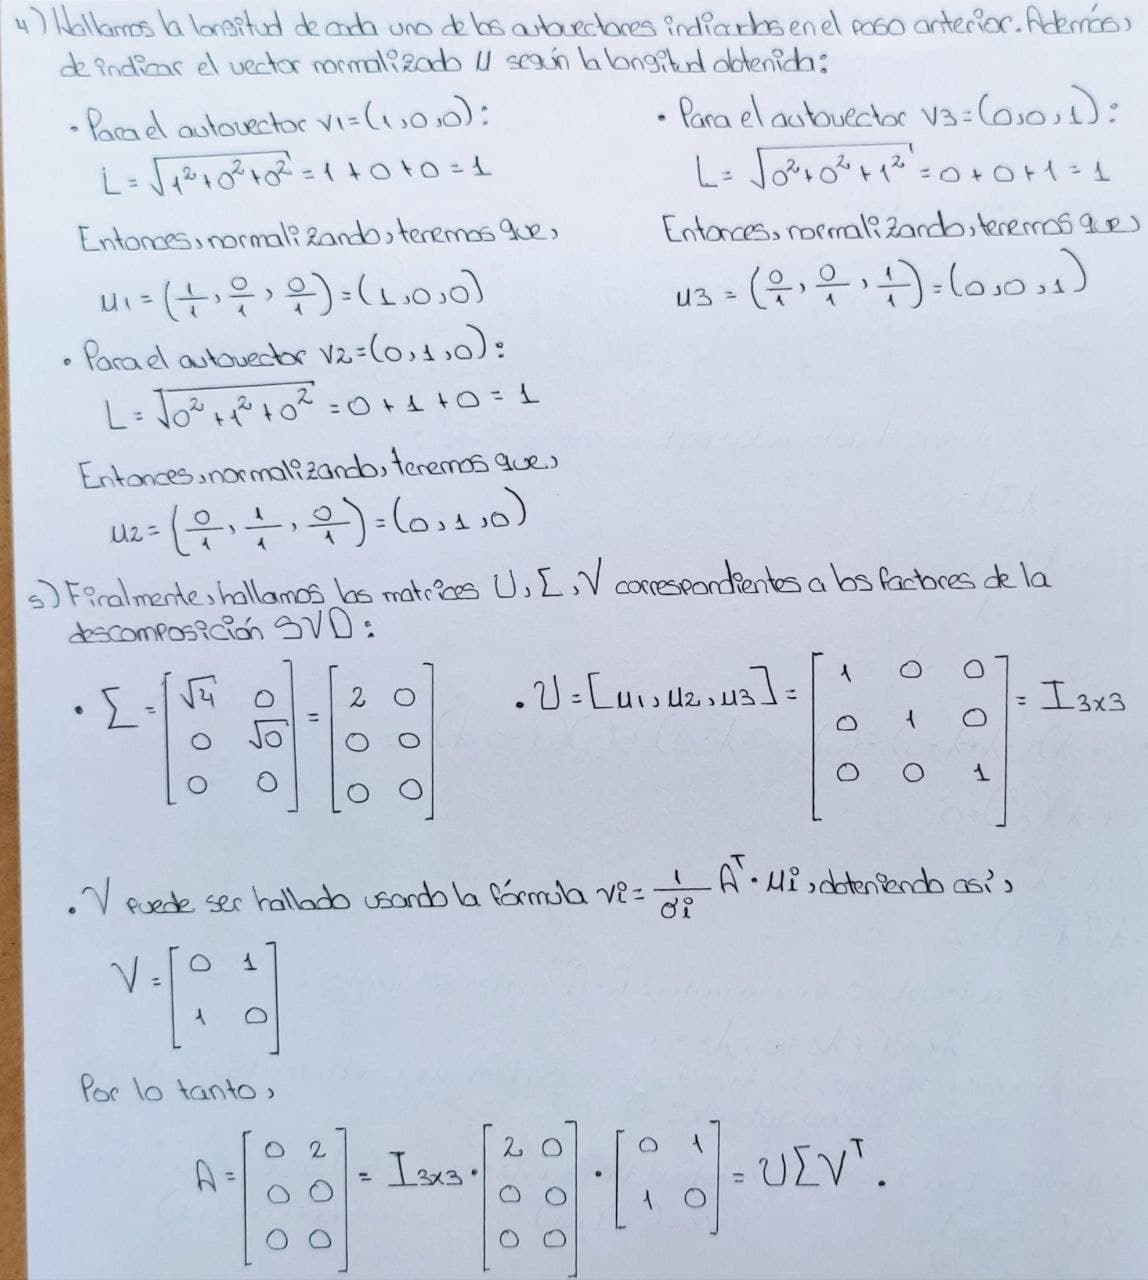 4) Hallamos la longitud de cada uno de los autovectores indicados en el paso anterior. Además,
de indicar el vector normalizado U según la longitud obtenida:
• Para el autovector v1=(1,0,0):
L=√(1²+0²+0²)=1+0+0=1
Entonces, normalizando, tenemos que,
u1=(1/1, 0/1, 0/1)=(1,0,0)
• Para el autovector v2=(0,1,0):
L=√(0²+1²+0²)=0+1+0=1
Entonces, normalizando, tenemos que,
u2=(0/1, 1/1, 0/1)=(0,1,0)
• Para el autovector v3=(0,0,1):
L=√(0²+0²+1²)=0+0+1=1
Entonces, normalizando, tenemos que,
u3=(0/1, 0/1, 1/1)=(0,0,1)
5) Finalmente, hallamos las matrices U, Σ, V correspondientes a los factores de la
descomposición SVD:
• Σ=[√4 0; 0 √0; 0 0]=[2 0; 0 0; 0 0]
• U=[u1,u2,u3]=[1 0 0; 0 1 0; 0 0 1]=I3x3
• V puede ser hallado usando la fórmula vi=1/σi A^T·ui, obteniendo así,
V=[0 1; 1 0]
Por lo tanto,
A=[0 2; 0 0; 0 0]=I3x3·[2 0; 0 0; 0 0]·[0 1; 1 0]=UΣV^T.